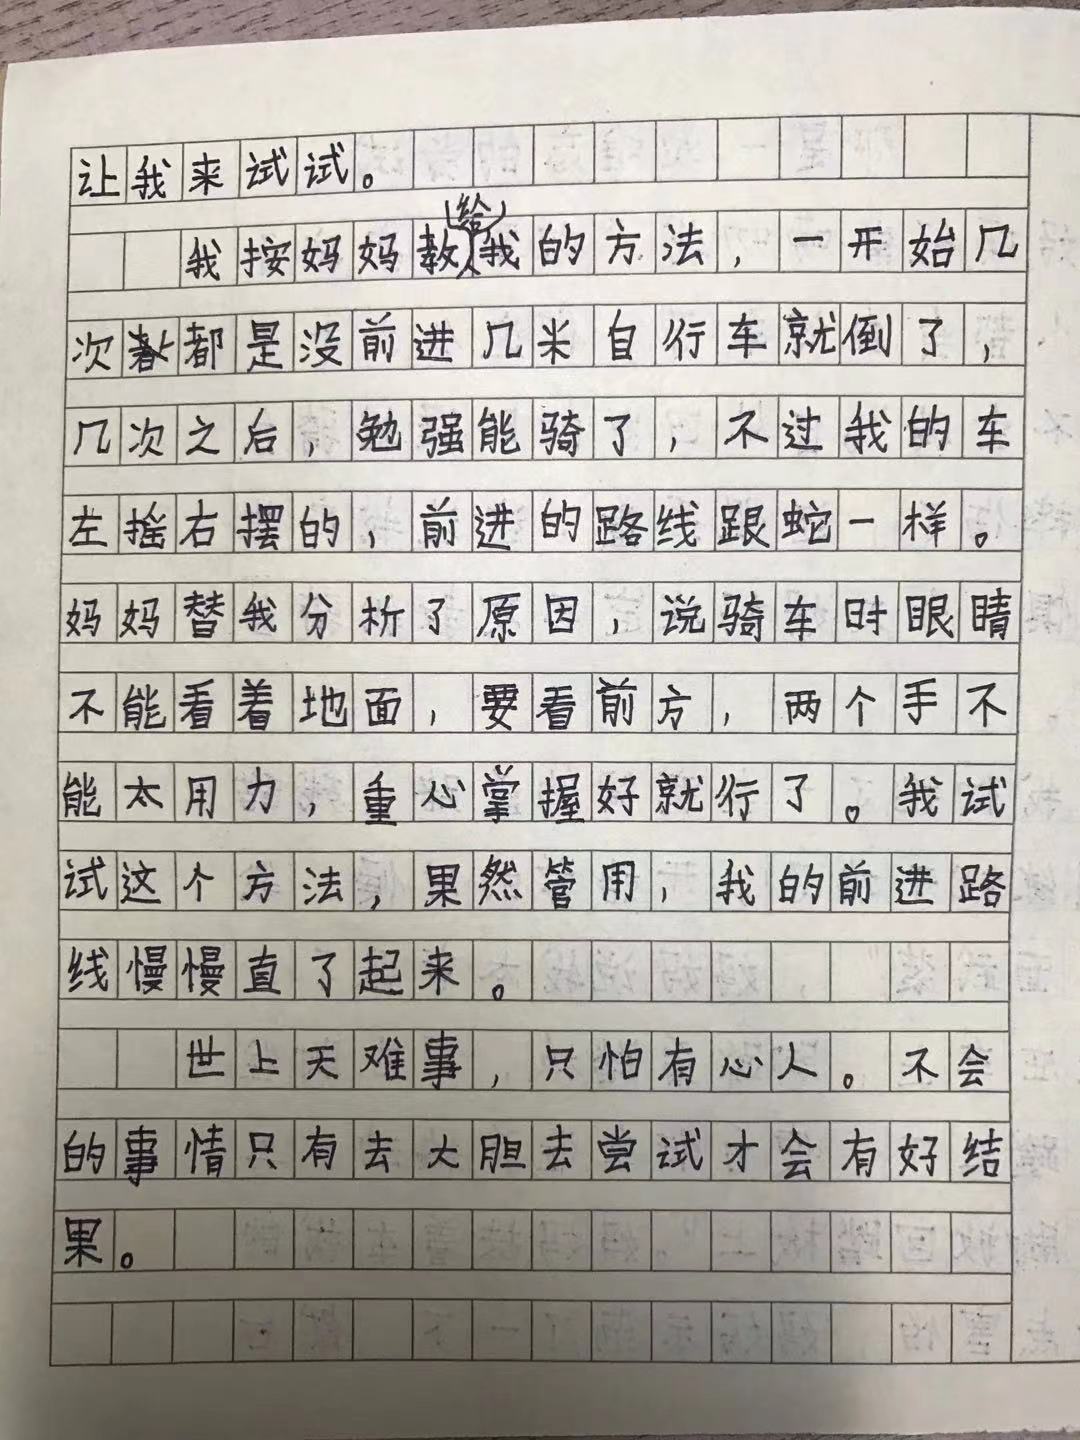 让我来试试。
我按妈妈教给我的方法，一开始几
次都是没前进几米自行车就倒了，
几次之后，勉强能骑了，不过我的车
左摇右摆的，前进的路线跟蛇一样。
妈妈替我分析了原因，说骑车时眼睛
不能看着地面，要看前方，两个手不
能太用力，重心掌握好就行了。我试
试这个方法，果然管用，我的前进路
线慢慢直了起来。
世上天难事，只怕有心人。不会
的事情只有去大胆去尝试才会有好结
果。